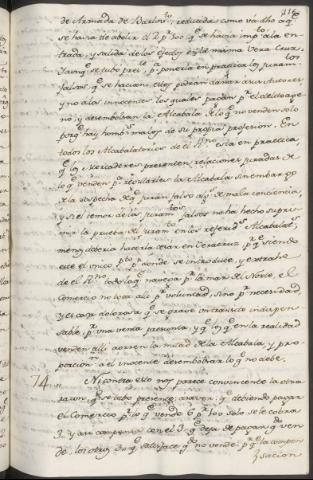 de Armada de Barlov.to, reducida como va dho a q.e
se havia de abolir el 2 p.r 100 q.e se havia imp.to a la en-
trada, y salida de los Efectos en la misma Vera Cruz.
y aunq.e se jusgó preciso p.a ponerla en practica los juram.tos
falsos q.e se hacian, estos podrian dañar a sus Autores
y no a los inocentes los quales pagan p.r el
no, y desembolsan la Alcabala de lo q.e no venden solo
porq.e hay hombres malos de su propia profesion. En
todos los Alcabalatorios de el Rno esta en practica,
q.e los Mercaderes presenten relaciones juradas de
lo q.e venden p.a regularles la Alcabala sin embargo
de la sospecha de q.e juran falso algs de mala conciencia,
y si el temor de los juram.tos falsos no ha hecho supri-
mir la prueba de juram.to en los referidos Alcabalat.s
menos debería hacerla cesar en Veracruz p.r q.e siendo
este el unico p.to p.r donde se introduce, y extrahe
de el Rno todo lo q.e navega p.r la mar de el Norte, el
Comercio no va alli p.r voluntad, sino p.r necesidad,
y es cosa dolorosa q.e se grave un transito indepen-
sable p.r una venta presunta, y q.e los q.e en la realidad
venden alli ahorren la mitad de la Alcabala, y pro-
porcion a el inocente desembolsar lo q.e no debe.
74. Ni contra esto nos parece convincente la otra
razon, q.e se tubo presente, a saver: q.e debiendo pagar
el Comercio p.r lo q.e vende 6 p.r 100 solo se le cobra
3. y an compensa con el 3. q.e deja de pagar, q.do ven
de, los otros 3. q.e satisface q.do no vende: p.r q.e la compen
sacion